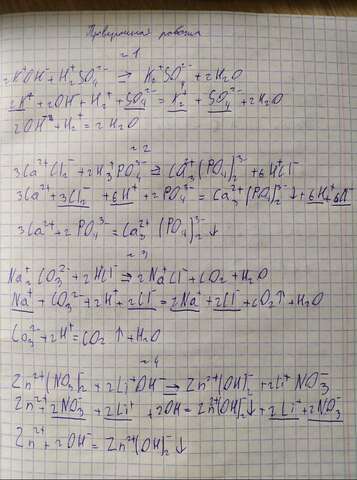 Проверочная работа
~1
2K⁺OH⁻+H₂⁺SO₄²⁻ ⇒ K₂⁺SO₄²⁻+2H₂O
2K⁺+2OH⁻+H₂⁺+SO₄²⁻=K₂⁺+SO₄²⁻+2H₂O
2OH⁻+H₂⁺=2H₂O
~2
3Ca²⁺Cl₂⁻+2H₃⁺PO₄³⁻ ⇒ Ca₃²⁺(PO₄)₂³⁻+6H⁺Cl⁻
3Ca²⁺+3Cl₂⁻+6H⁺+2PO₄³⁻=Ca₃²⁺(PO₄)₂³⁻↓+6H⁺+6Cl⁻
3Ca²⁺+2PO₄³⁻=Ca₃²⁺(PO₄)₂³⁻↓
~3
Na₂⁺CO₃²⁻+2H⁺Cl⁻ ⇒ 2Na⁺Cl⁻+CO₂+H₂O
Na₂⁺+CO₃²⁻+2H⁺+2Cl⁻=2Na⁺+2Cl⁻+CO₂↑+H₂O
CO₃²⁻+2H⁺=CO₂↑+H₂O
~4
Zn²⁺(NO₃)₂⁻+2Li⁺OH⁻ ⇒ Zn²⁺(OH)₂⁻+2Li⁺NO₃⁻
Zn²⁺+2NO₃⁻+2Li⁺+2OH⁻=Zn²⁺(OH)₂⁻↓+2Li⁺+2NO₃⁻
Zn²⁺+2OH⁻=Zn²⁺(OH)₂⁻↓